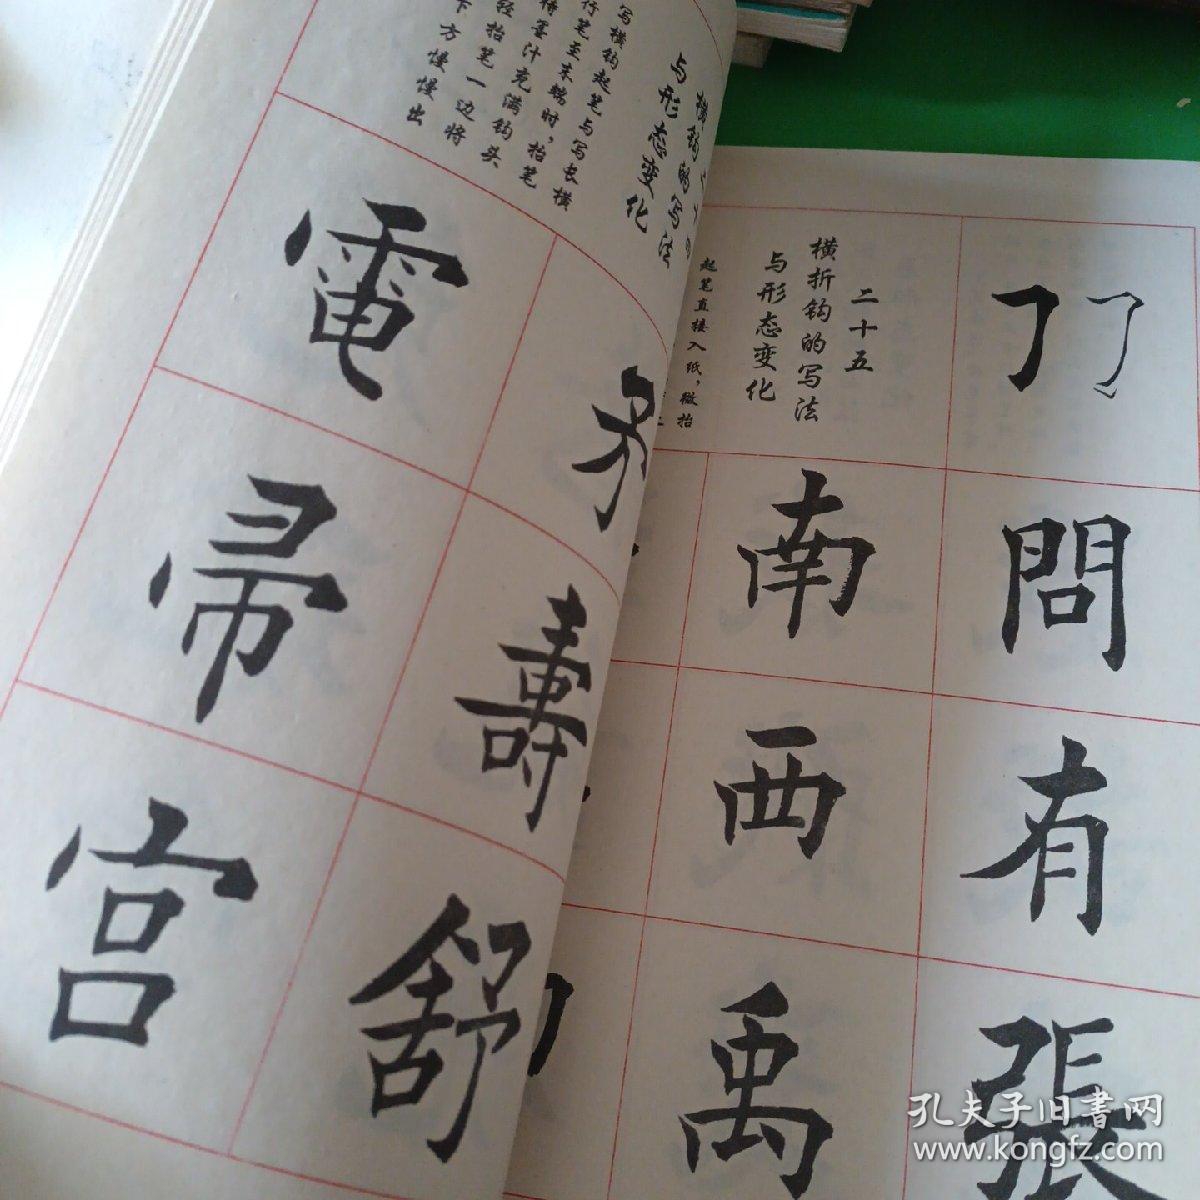 二十五
横折钩的写法
与形态变化
起笔直接入纸，微抬
問
有
張
南
西
禹
横钩的写法
与形态变化
写横钩起笔与写长横
行笔至末端时，抬笔
待墨汁充满钩头
轻抬笔一边将
方慢慢出
壽
舒
電
帚
宫
孔夫子旧書网
www.kongfz.com